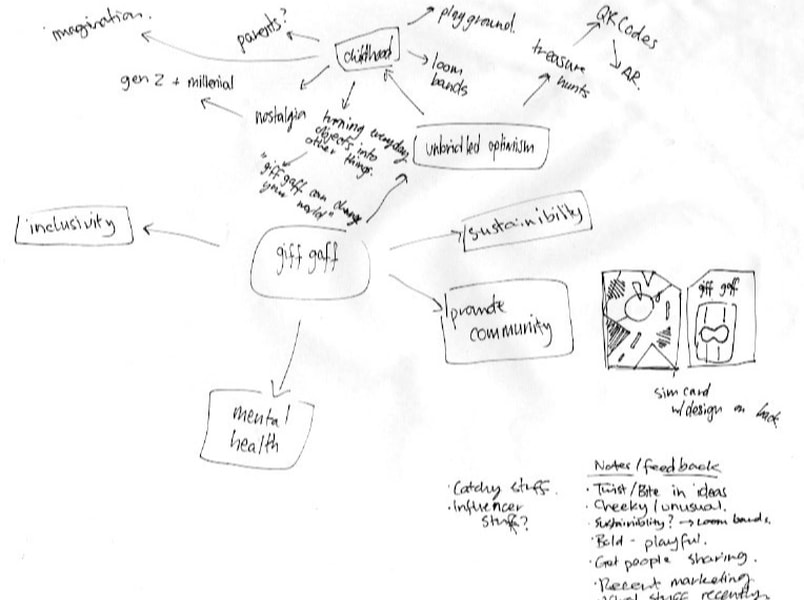 imagination.
parents?
playground.
QR Codes
AR.
childhood
loom
bands
treasure
hunts
gen Z + millenial
nostalgia
turning everyday
objects into
other things.
"giff gaff can change
your world"
unbridled optimism
inclusivity
giff gaff
sustainibility
promote
community
giff gaff
sim card
w/design on back
mental
health
Catchy stuff.
Influencer
stuff?
Notes/feedback
· Twist/Bite in ideas
· Cheeky/unusual.
· Sustainiblity? → Loom bands.
· Bold - playful.
· Get people sharing.
· Recent marketing
stuff recently